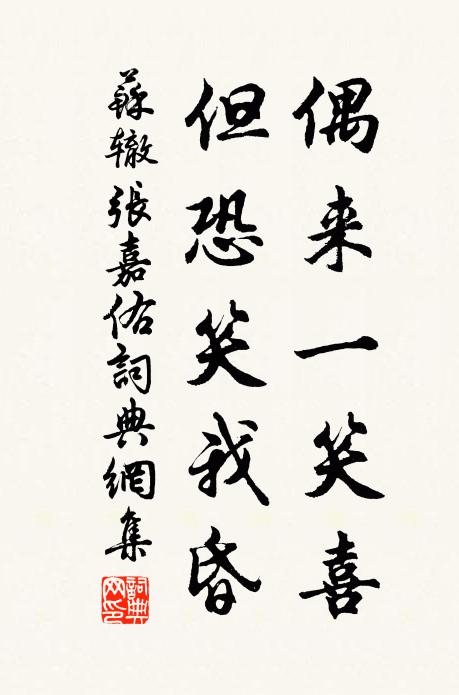 偶来一笑喜
但恐笑我昏
蘇辙張嘉佑詞典網集
詞典网印